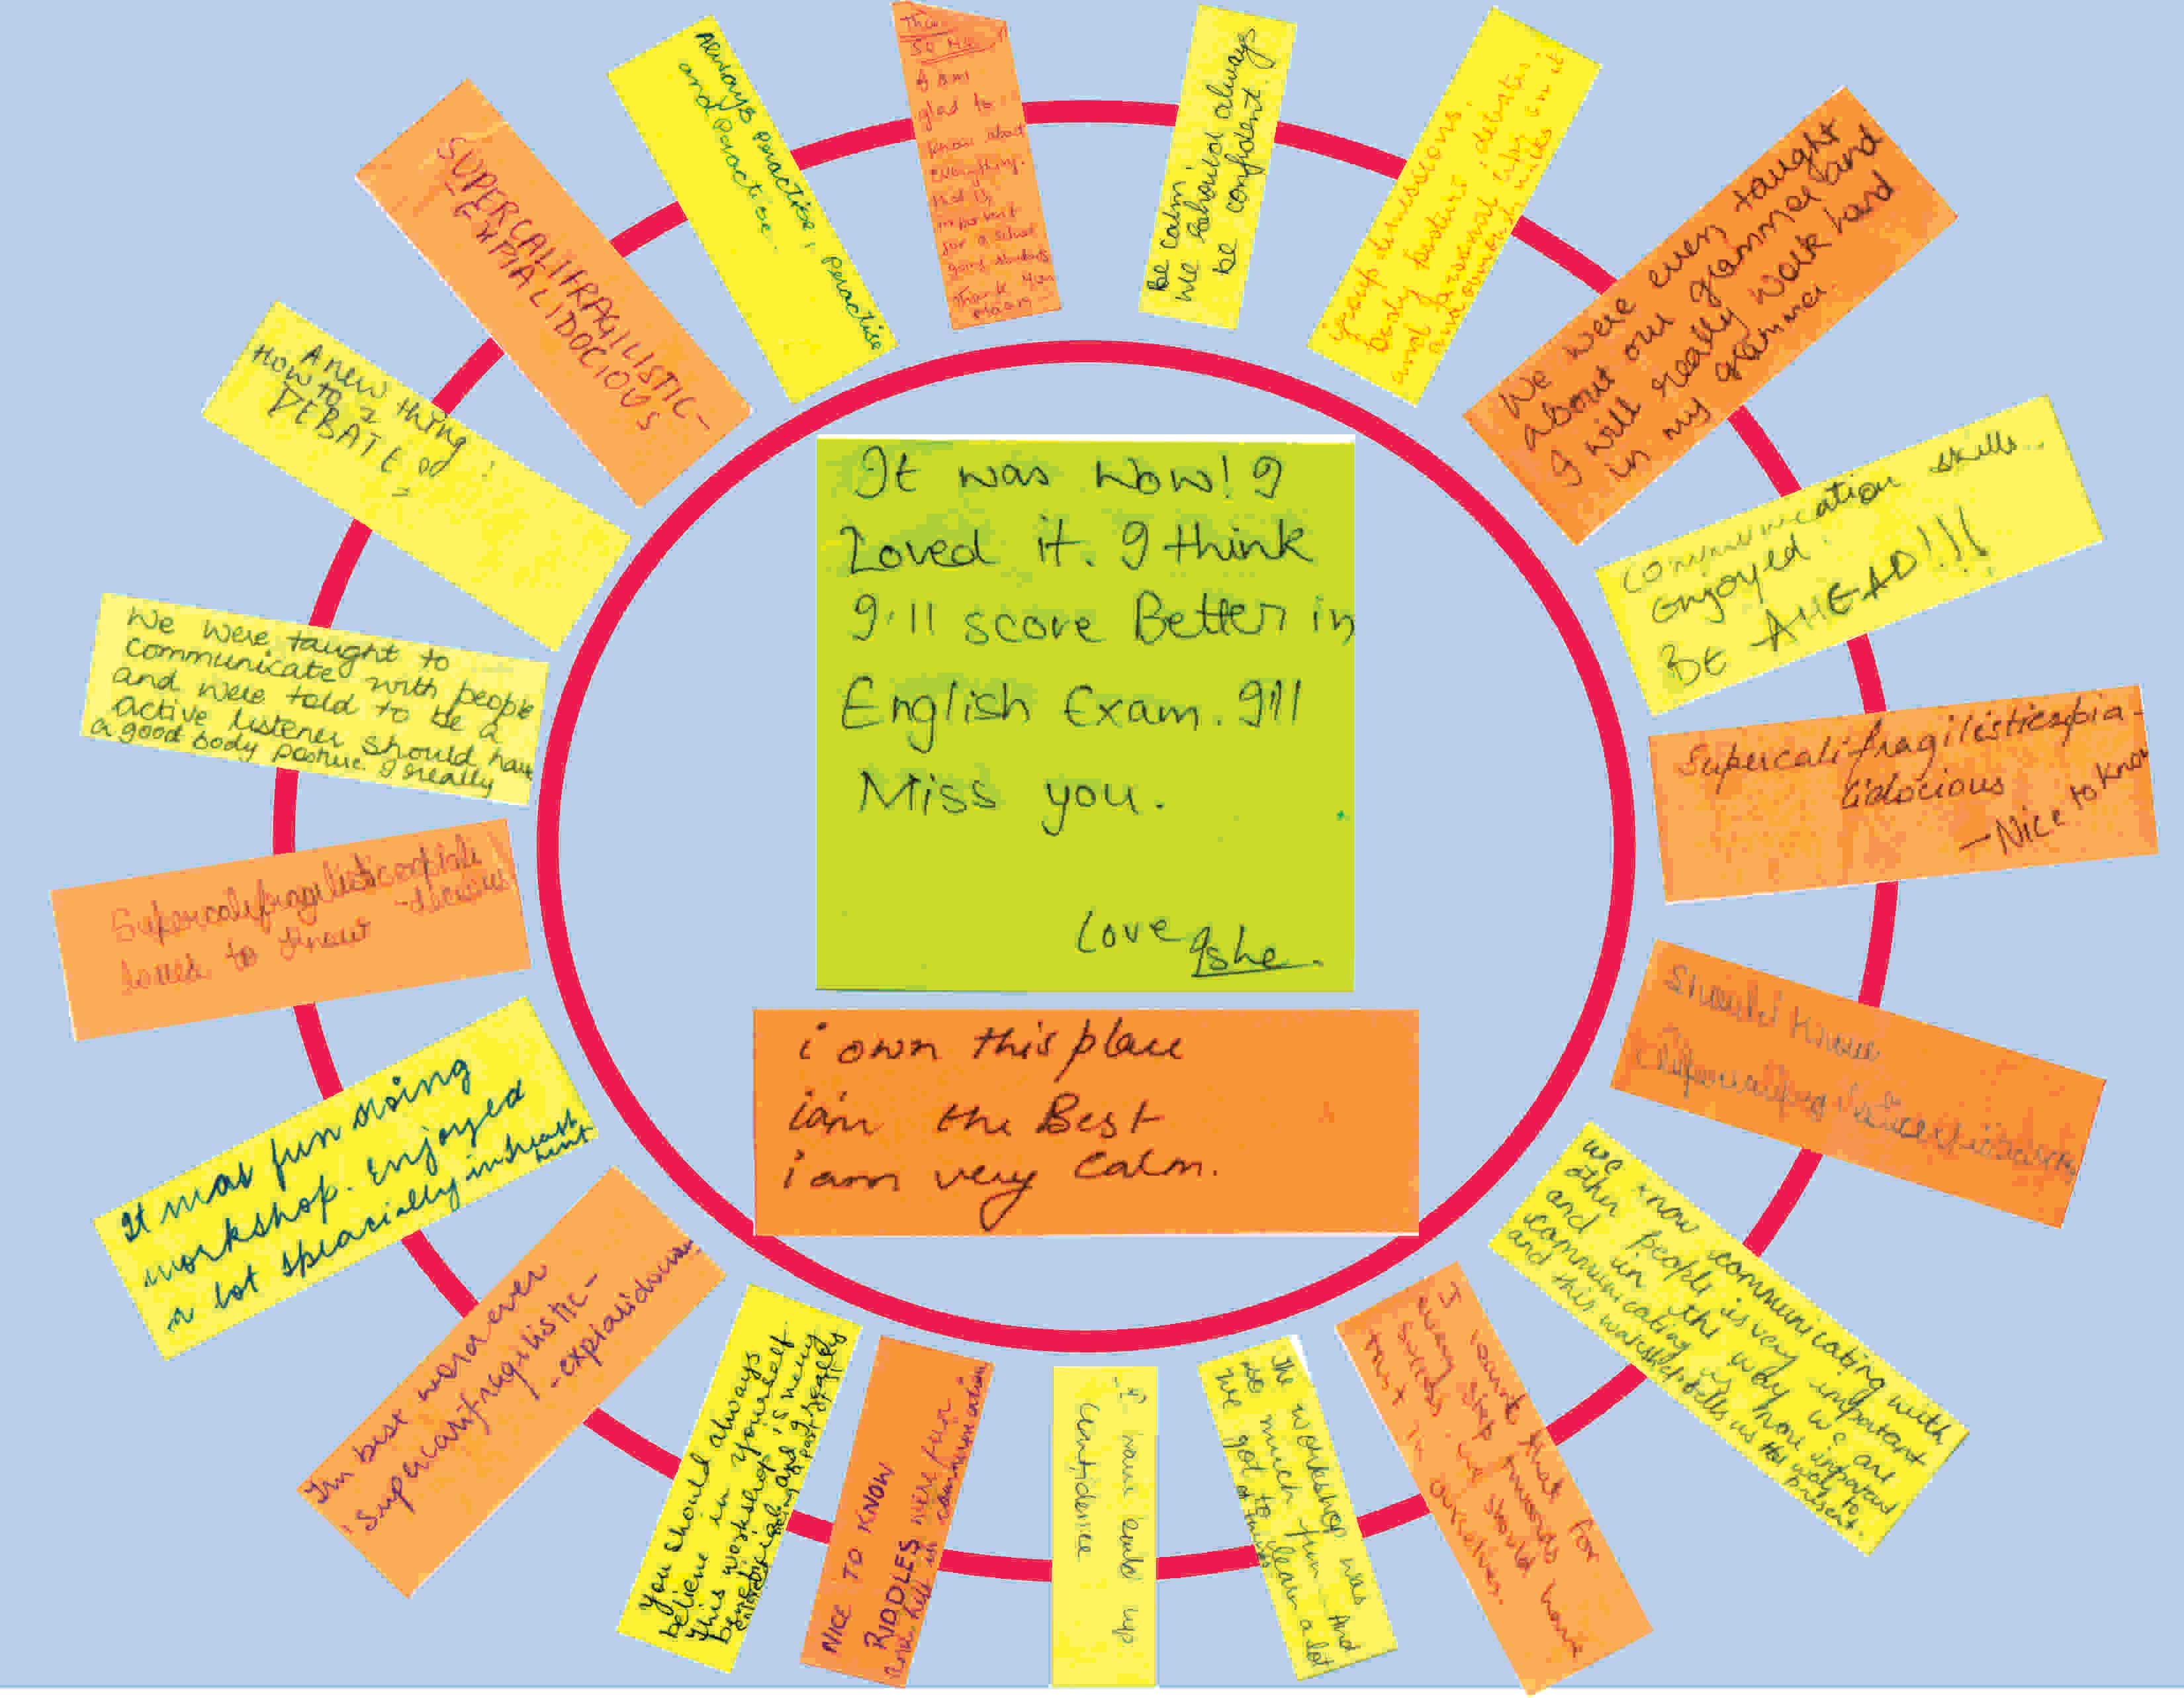 It was Wow! I
Loved it. I think
I'll score Better in
English Exam. I'll
Miss you.
Love Ishe.
i own this place
iam the Best
i am very calm.
be calm,
we should always
be confident.
group discussions,
and
We were even taught
about our grammer and
I will really work hard
in my grammer
Communication skills..
Enjoyed.
BE AHEAD!!!
Supercalifragilisticexpia-
lidocious
-Nice to know
Should Know
We know communicating with
other people is very important
and in the way we are
communicating is more important
and this workshop tells us the way to
present.
I want that for
every step towards
success we should have
trust in ourselves.
The workshop was
so much fun. And
we got to learn a lot
I have build up
confidence
NICE TO KNOW
RIDDLES were fun
communication
you should always
believe in yourself
This workshop is very
beneficial and I really
The best word ever
Supercalifragilistic-
-expialidocious
It was fun doing
workshop. Enjoyed
a lot speacially in treasure
hunt
Supercalifragilisticexpiali
-docious
to know
We were taught to
communicate with people
and were told to be a
active listener should have
a good body posture. I really
A new thing!
HOW TO
DEBATE
SUPERCALIFRAGILISTIC-
-EXPIALIDOCIOUS
Always peractise, peractise
and peractise.
I am
glad to
know about
everything.
that is
important
for a school
going students
Thank you